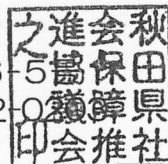 秋田県社
会保障推
進協議会
之印
-5
2-0